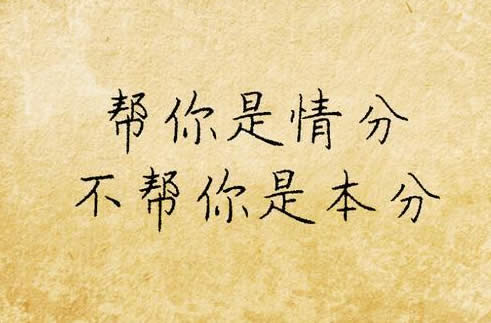 帮你是情分
不帮你是本分